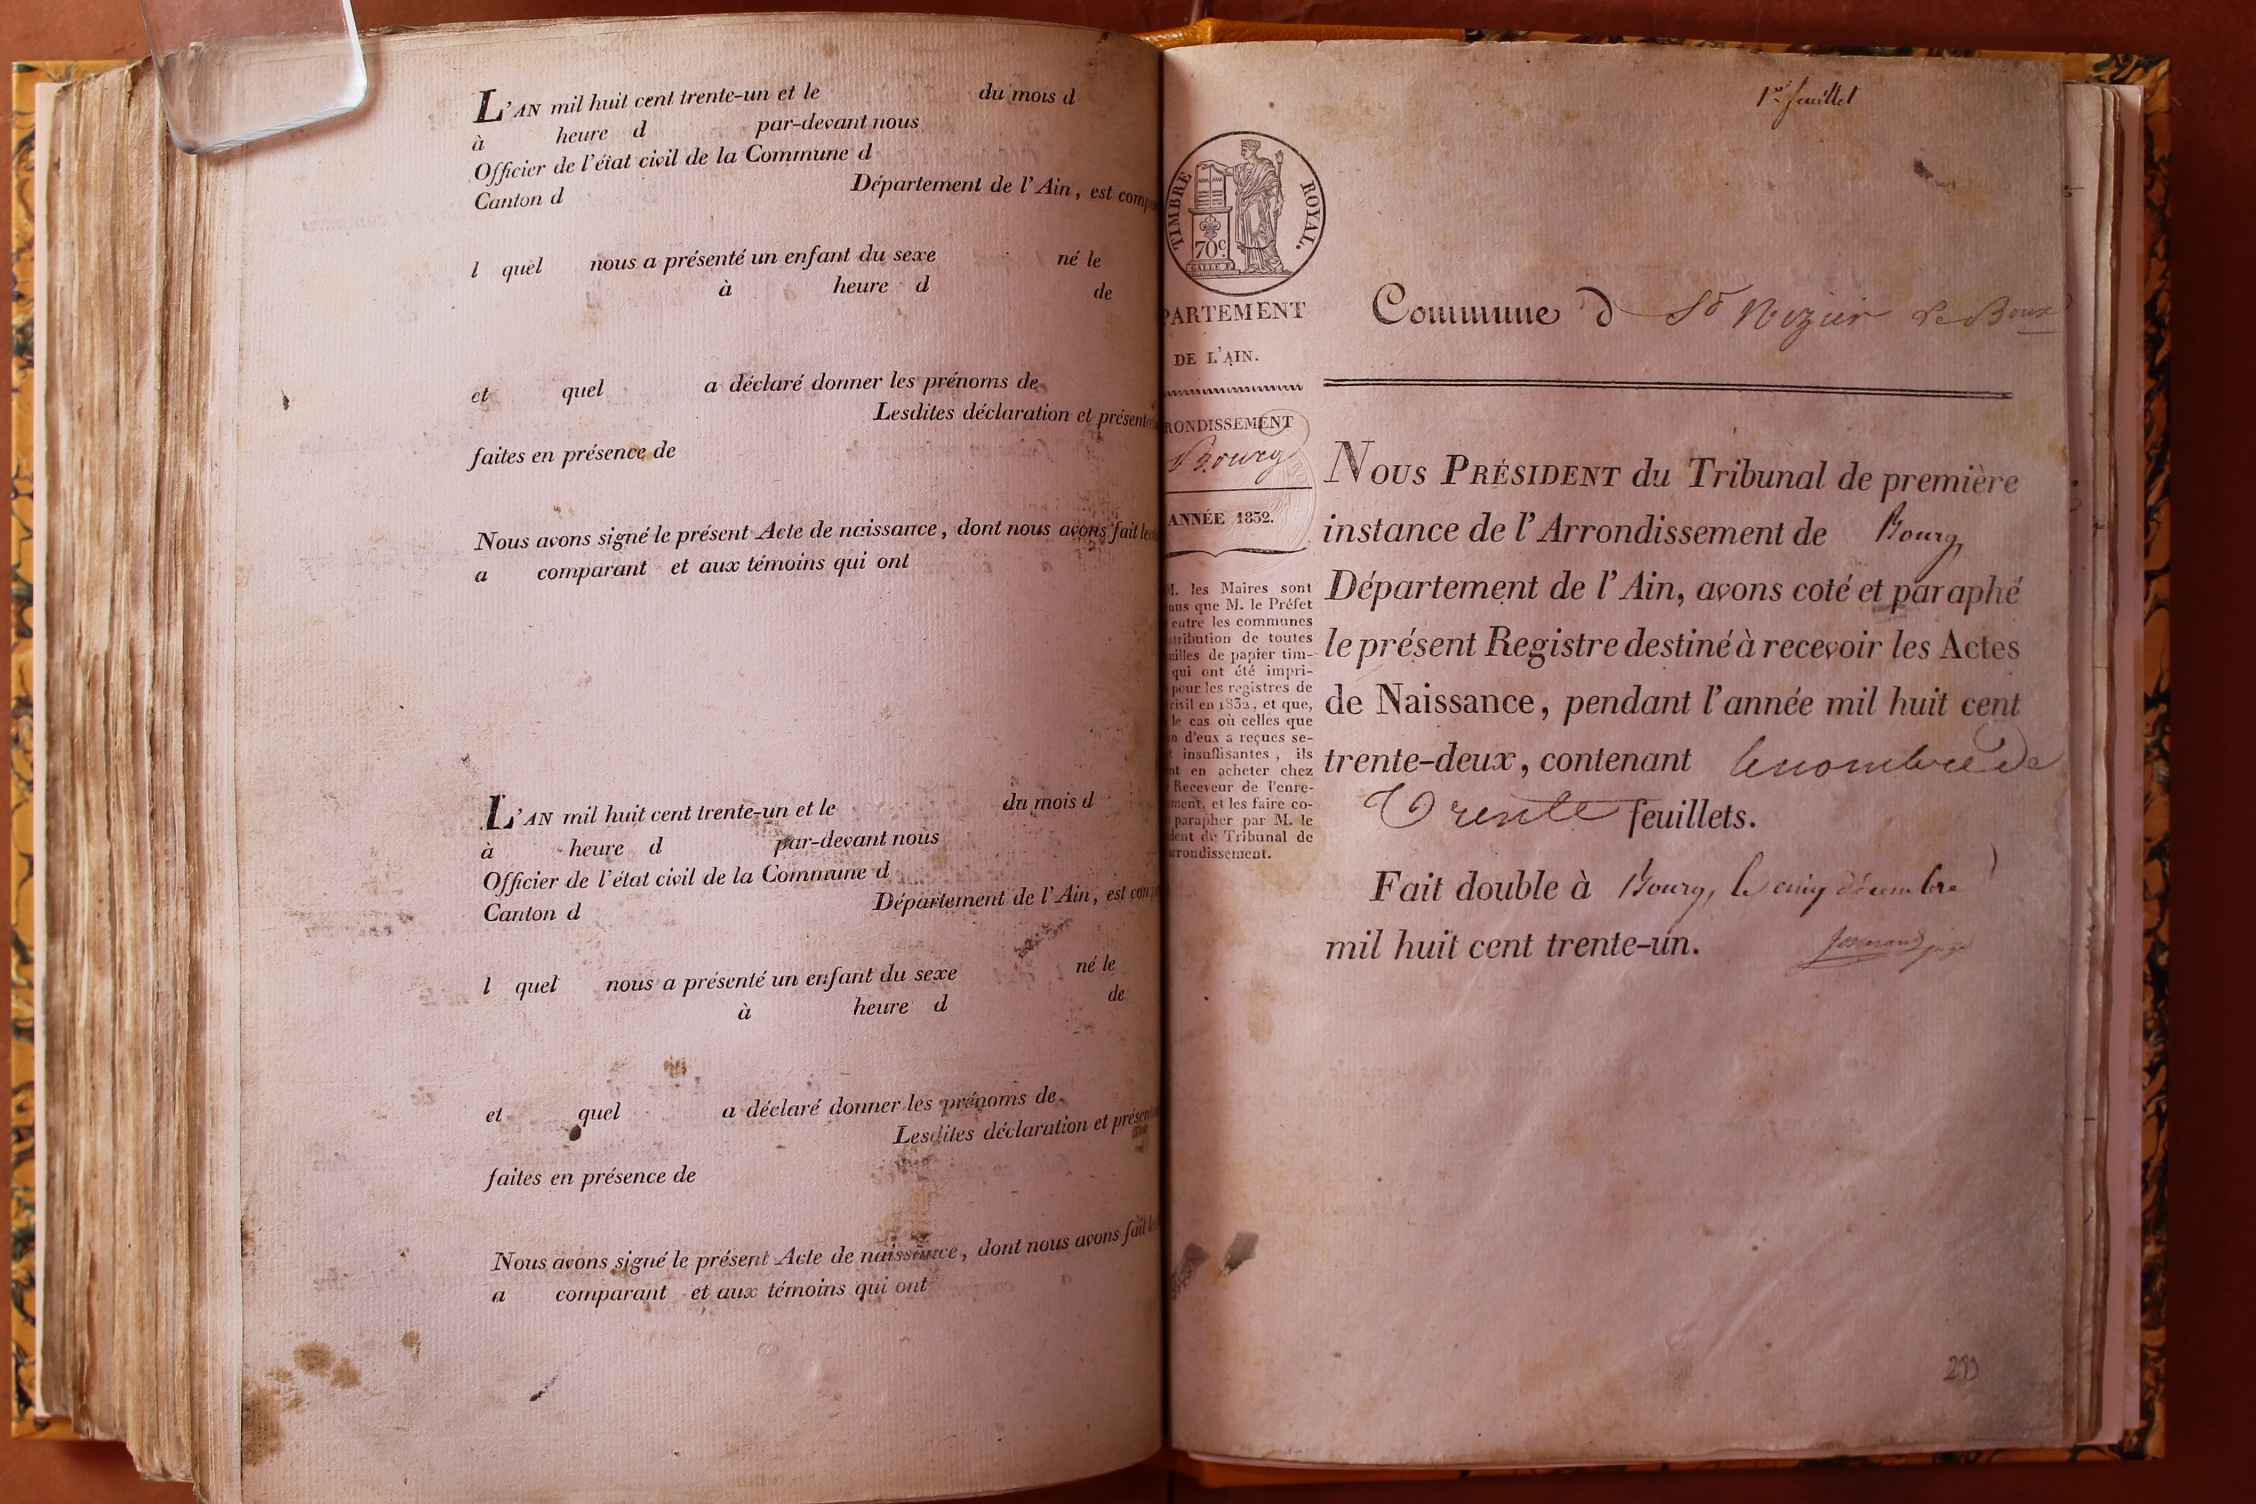 L'AN mil huit cent trente-un et le du mois d
à heure d par-devant nous
Officier de l'état civil de la Commune d
Canton d Département de l'Ain, est comp
l quel nous a présenté un enfant du sexe né le
à heure d de
et quel a déclaré donner les prénoms de
Lesdites déclaration et présent
faites en présence de
Nous avons signé le présent Acte de naissance, dont nous avons fait le
a comparant et aux témoins qui ont
L'AN mil huit cent trente-un et le du mois d
à heure d par-devant nous
Officier de l'état civil de la Commune d
Canton d Département de l'Ain, est com
l quel nous a présenté un enfant du sexe né le
à heure d de
et quel a déclaré donner les prénoms de
Lesdites déclaration et présen
faites en présence de
Nous avons signé le présent Acte de naissance, dont nous avons fait
a comparant et aux témoins qui ont
1er feuillet
TIMBRE ROYAL.
70c.
PARTEMENT
DE L'AIN.
RONDISSEMENT
Bourg
ANNÉE 1832.
M. les Maires sont
nus que M. le Préfet
entre les communes
tribution de toutes
uilles de papier tim-
qui ont été impri-
pour les registres de
civil en 1832, et que,
le cas où celles que
n d'eux a reçues se-
t insuffisantes, ils
nt en acheter chez
Receveur de l'enre-
ment, et les faire co-
parapher par M. le
dent de Tribunal de
rondissement.
Commune d St Nizier le Boux
NOUS PRÉSIDENT du Tribunal de première
instance de l'Arrondissement de Bourg
Département de l'Ain, avons coté et paraphé
le présent Registre destiné à recevoir les Actes
de Naissance, pendant l'année mil huit cent
trente-deux, contenant le nombre de
Trente feuillets.
Fait double à Bourg, le cinq décembre
mil huit cent trente-un.
juge